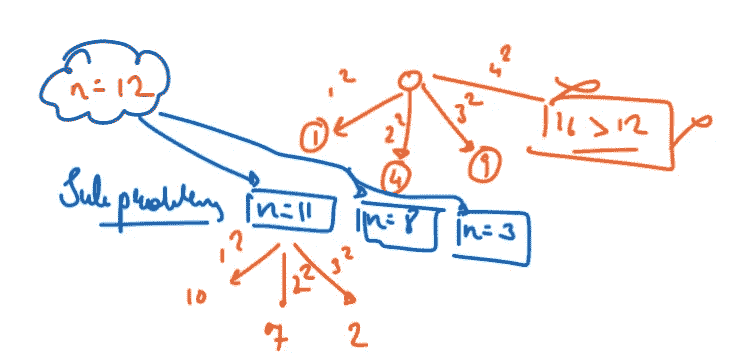 n = 12
1² 2² 3² 4²
1 4 9
16 > 12
Subproblem
n = 11 n = 8 n = 3
1² 2² 3²
10 7 2